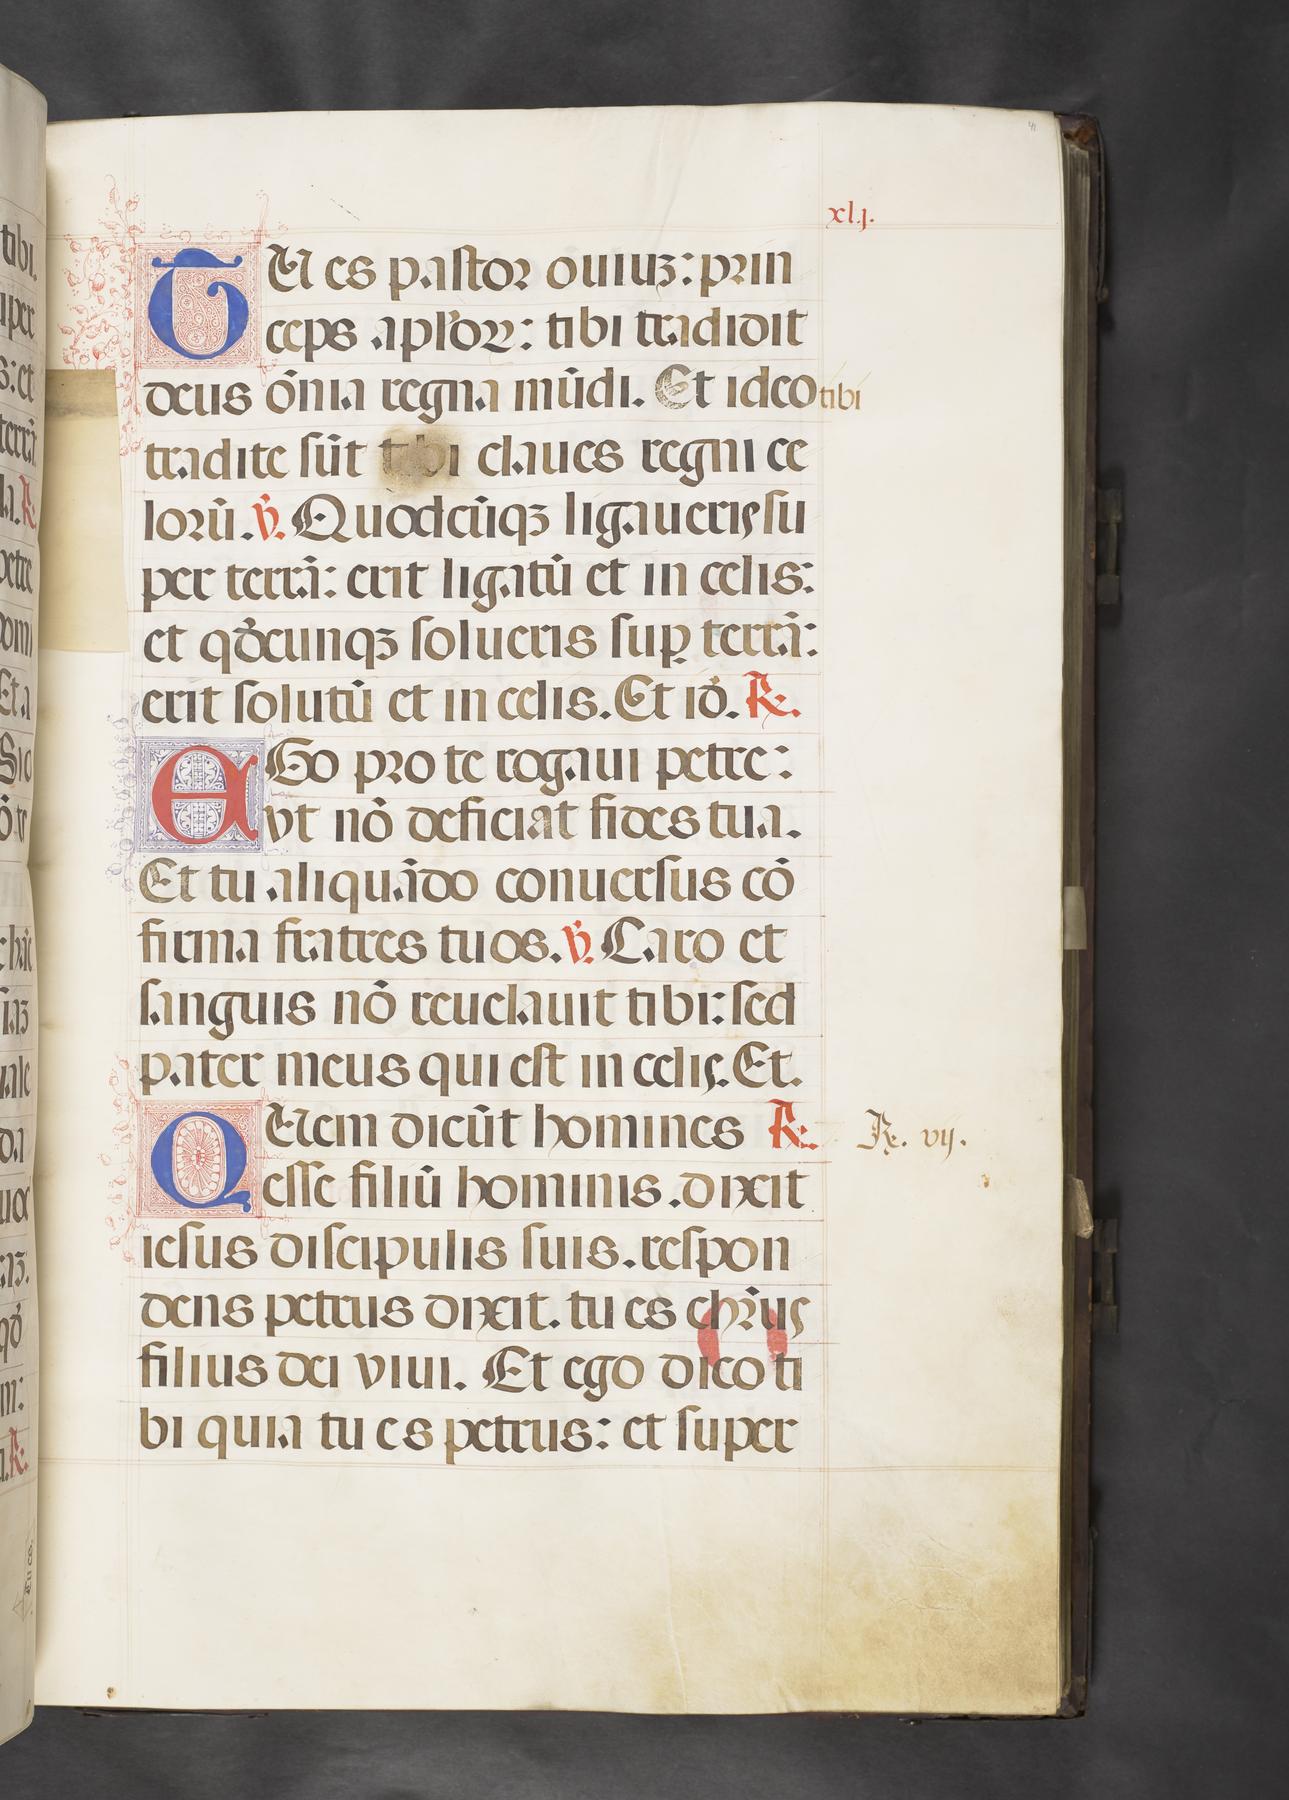 xl.j.
TU es pastor ouiuꝫ: prin
ceps aplõꝝ: tibi tradidit
deus õnia regna mũdi. Et ideo tibi
tradite sũt tibi claues regni ce
lorũ. ℣. Quodcũqꝫ ligaueris su
per terrã: erit ligatũ et in celis:
et qđcunqꝫ solueris suꝑ terrã:
erit solutũ et in celis. Et iõ. ℟.
EGo pro te rogaui petre:
vt nõ deficiat fides tua.
Et tu aliquãdo conuersus cõ
firma fratres tuos. ℣. Caro et
sanguis nõ reuelauit tibi: sed
pater meus qui est in celis. Et.
QUem dicũt homines ℟. ℟. vij.
esse filiũ hominis. dixit
iesus discipulis suis. respon
dens petrus dixit. tu es chr̃us
filius dei viui. Et ego dico ti
bi quia tu es petrus: et super